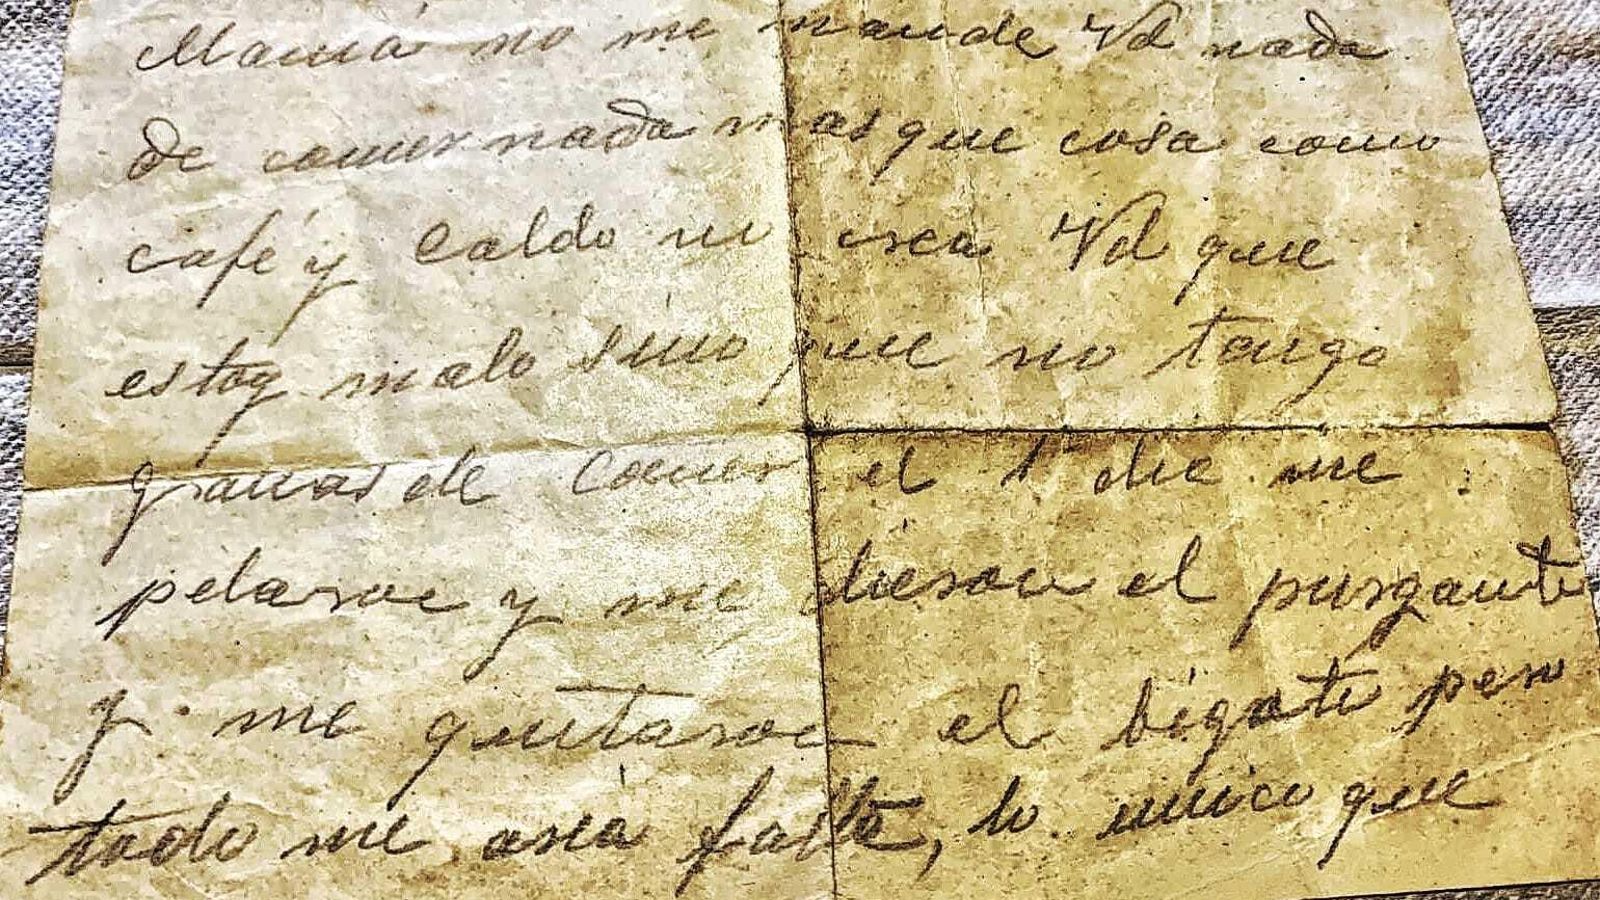 Mamá no me mande Vd nada
de comer nada mas que cosa como
café y Caldo no crea Vd que
estoy malo sino que no tengo
ganas de comer el 1º die me
pelaron y me dieron el purgante
y me quitaron el bigote pero
todo me asia falta, lo unico que